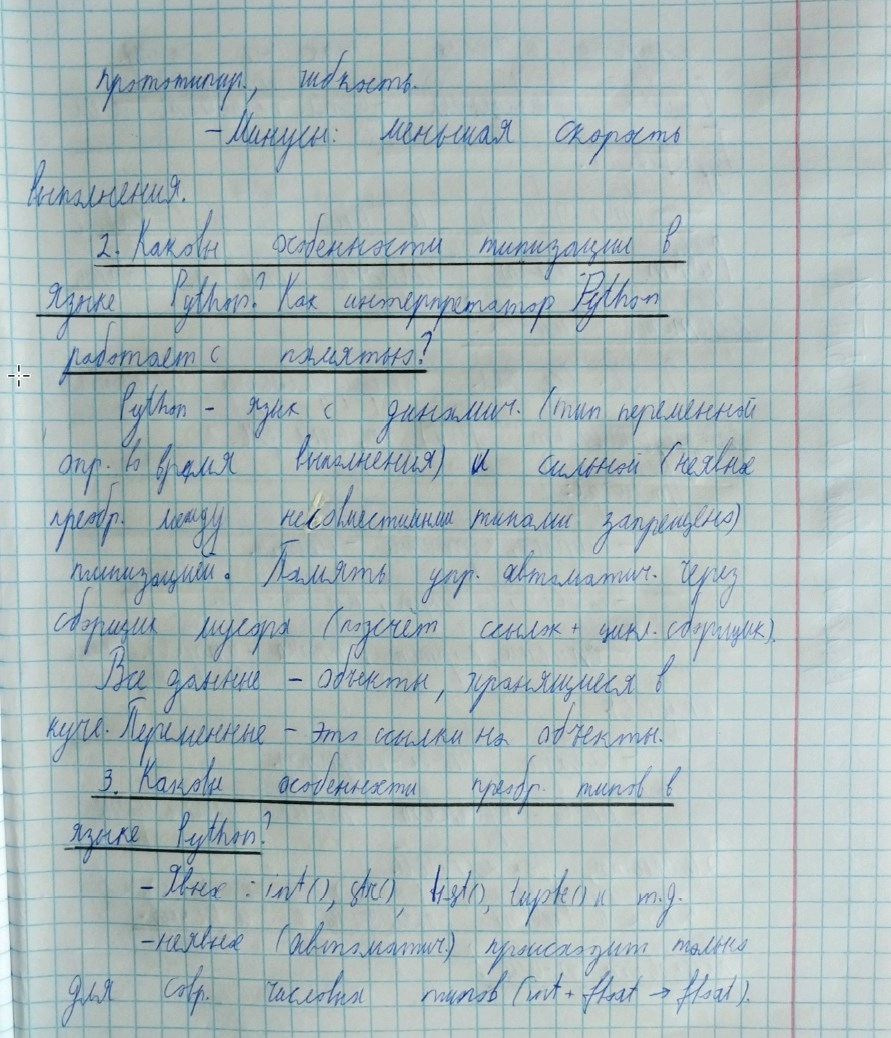 прототипир., гибкость.
- Минусы: меньшая скорость
выполнения.
2. Каковы особенности типизации в
языке Python? Как интерпретатор Python
работает с памятью?
Python - язык с динамич. (тип переменной
опр. во время выполнения) и сильной (неявное
преобр. между несовместимыми типами запрещено)
типизацией. Память упр. автоматич. через
сборщик мусора (подсчёт ссылок + цикл. сборщик).
Все данные - объекты, хранящиеся в
куче. Переменные - это ссылки на объекты.
3. Каковы особенности преобр. типов в
языке Python?
- Явное : int(), str(), list(), tuple() и т.д.
- неявное (автоматич.) происходит только
для совр. числовых типов (int + float → float).